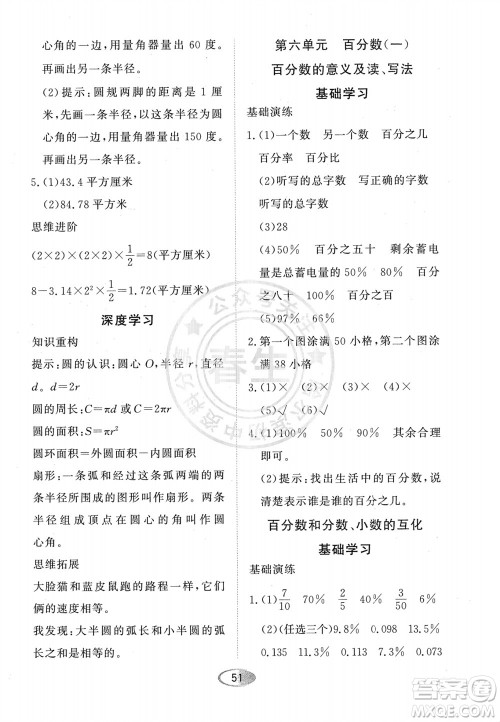 心角的一边，用量角器量出 60 度。
再画出另一条半径。
(2)提示：圆规两脚的距离是 1 厘米，以这条线段的一个端点为圆心画圆，然后以这条半径作为圆
心角的一边，用量角器量出 150 度。
再画出另一条半径。
5.(1)43.4 平方厘米
(2)84.78 平方厘米
思维进阶
(2×2)×(2×2)×1/2=8(平方厘米)
8－3.14×2²×1/2=1.72(平方厘米)
深度学习
知识重构
提示：圆的认识：圆心 O，半径 r，直径
d。d=2r
圆的周长：C=πd C=2πr
圆的面积：S=πr²
圆环面积=外圆面积－内圆面积
扇形：一条弧和经过这条弧两端的两条
半径所围成的图形叫作扇形。两条
半径组成的，顶点在圆心的角叫作圆
心角。
思维拓展
大脸猫和蓝皮鼠跑的路程一样，它们
俩的速度是相等的。
我发现：大半圆的弧长和小半圆的弧长
之和是相等的。
第六单元 百分数(一)
百分数的意义及读、写法
基础学习
基础演练
1.(1)一个数 另一个数 百分之几
百分率 百分比
(2)听写的总字数 写正确的字数
(3)28
(4)50% 百分之五十 剩余蓄电量
占总蓄电量的百分之五十 80% 百
分之八十
(5)97%
2.第一个图涂满 50 小格，第二个图涂
满 38 小格
3.(1)× (2)× (3)× (4)×
(5)√ (6)√
4.(1)100% 90% 50% 其余合理
即可。
(2)提示：找出生活中的百分数，说
清楚谁是谁的百分之几。
百分数和分数、小数的互化
基础学习
基础演练
1.(1)7/10 70% 3/50 6%
(2)(任选三个)9.8% 0.098 13.5%
0.135 11.5% 0.115 4.23% 0.0423
51
春生